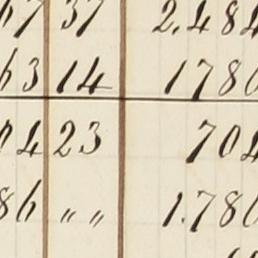 67 37 2.484
63 14 1780
74 23 704
86 " " 1.786